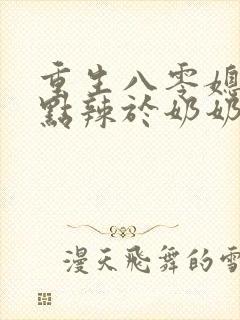 重生八零媳
點辣於奶奶
漫天飛舞的雪